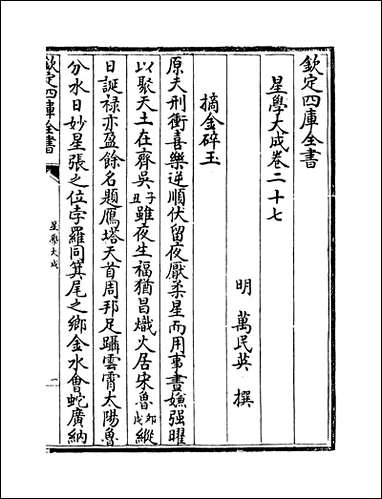 欽定四庫全書
星學大成卷二十七
明 萬民英 撰
摘金碎玉
原夫刑衝喜樂逆順伏留夜厭柔星而用事晝嫌强曜
以聚天土在齊吳子丑雖夜生福猶昌熾火居宋魯卯戌縱
日誕禄亦盈餘名題鴈塔天首周邦足躡雲霄太陽魯
分水日妙星張之位孛羅同箕尾之鄉金水會蛇廣納
欽定四庫全書
星學大成
一